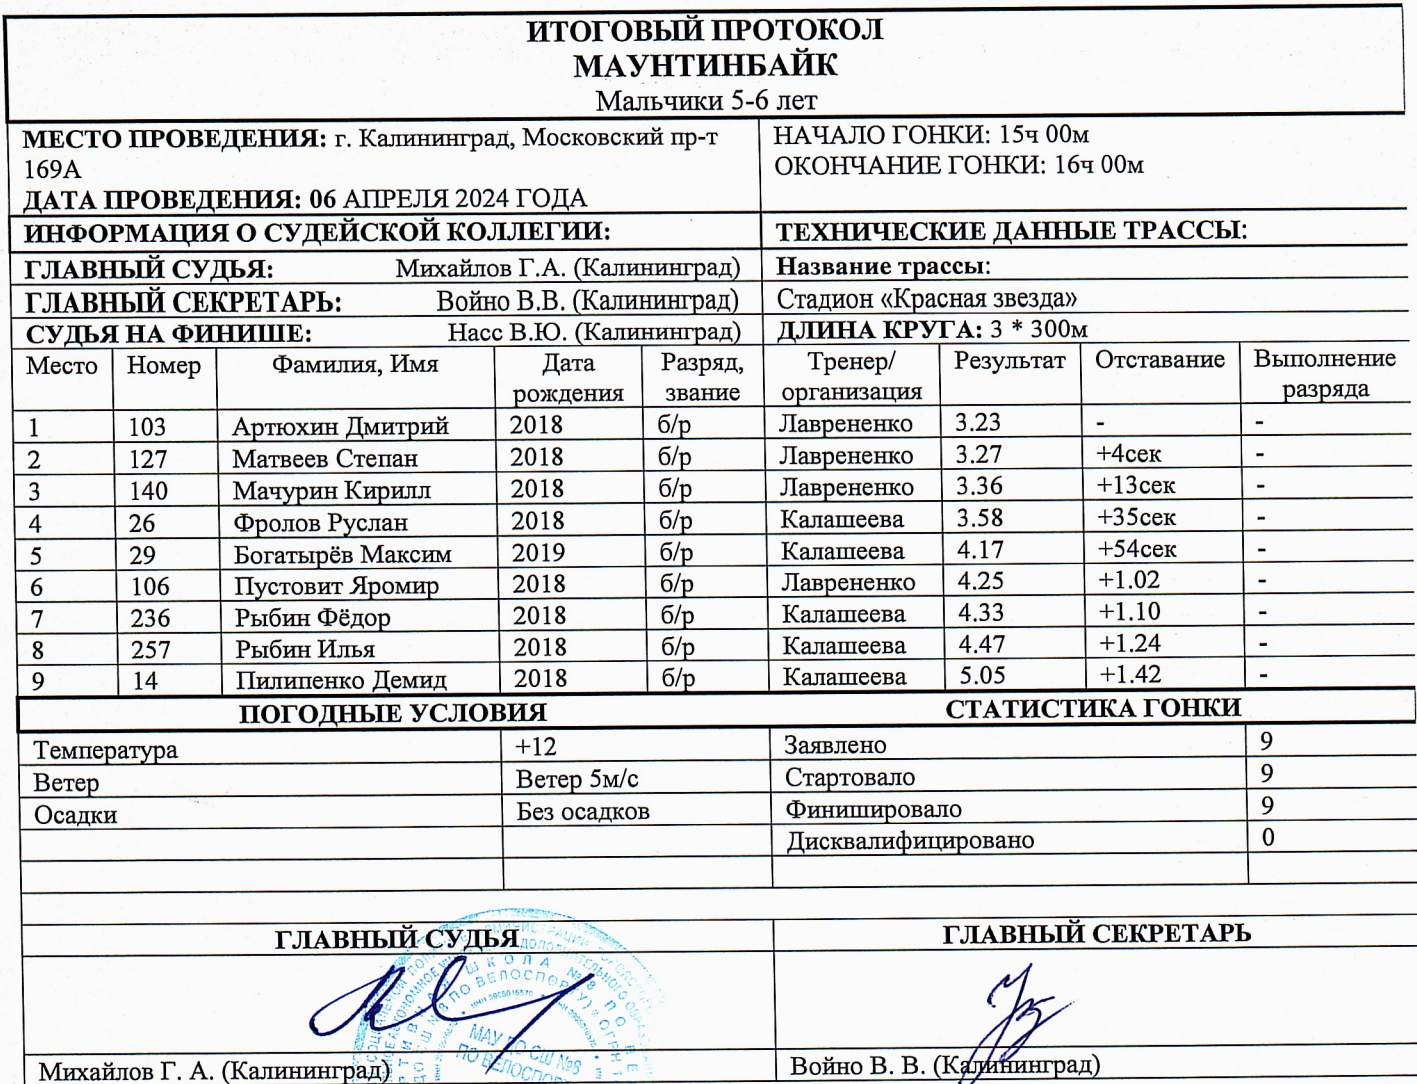 ИТОГОВЫЙ ПРОТОКОЛ
МАУНТИНБАЙК
Мальчики 5-6 лет
МЕСТО ПРОВЕДЕНИЯ: г. Калининград, Московский пр-т
169А
ДАТА ПРОВЕДЕНИЯ: 06 АПРЕЛЯ 2024 ГОДА
НАЧАЛО ГОНКИ: 15ч 00м
ОКОНЧАНИЕ ГОНКИ: 16ч 00м
ИНФОРМАЦИЯ О СУДЕЙСКОЙ КОЛЛЕГИИ: ТЕХНИЧЕСКИЕ ДАННЫЕ ТРАССЫ:
ГЛАВНЫЙ СУДЬЯ: Михайлов Г.А. (Калининград) Название трассы:
ГЛАВНЫЙ СЕКРЕТАРЬ: Войно В.В. (Калининград) Стадион «Красная звезда»
СУДЬЯ НА ФИНИШЕ: Насс В.Ю. (Калининград) ДЛИНА КРУГА: 3 * 300м
Место Номер Фамилия, Имя Дата рождения Разряд, звание Тренер/ организация Результат Отставание Выполнение разряда
1 103 Артюхин Дмитрий 2018 б/р Лаврененко 3.23 - -
2 127 Матвеев Степан 2018 б/р Лаврененко 3.27 +4сек -
3 140 Мачурин Кирилл 2018 б/р Лаврененко 3.36 +13сек -
4 26 Фролов Руслан 2018 б/р Калашеева 3.58 +35сек -
5 29 Богатырёв Максим 2019 б/р Калашеева 4.17 +54сек -
6 106 Пустовит Яромир 2018 б/р Лаврененко 4.25 +1.02 -
7 236 Рыбин Фёдор 2018 б/р Калашеева 4.33 +1.10 -
8 257 Рыбин Илья 2018 б/р Калашеева 4.47 +1.24 -
9 14 Пилипенко Демид 2018 б/р Калашеева 5.05 +1.42 -
ПОГОДНЫЕ УСЛОВИЯ СТАТИСТИКА ГОНКИ
Температура +12 Заявлено 9
Ветер Ветер 5м/с Стартовало 9
Осадки Без осадков Финишировало 9
Дисквалифицировано 0
ГЛАВНЫЙ СУДЬЯ ГЛАВНЫЙ СЕКРЕТАРЬ
ШКОЛА №8 ПО
ПО ВЕЛОСПОРТУ
МАУ ДО СШ №8
Михайлов Г. А. (Калининград) Войно В. В. (Калининград)